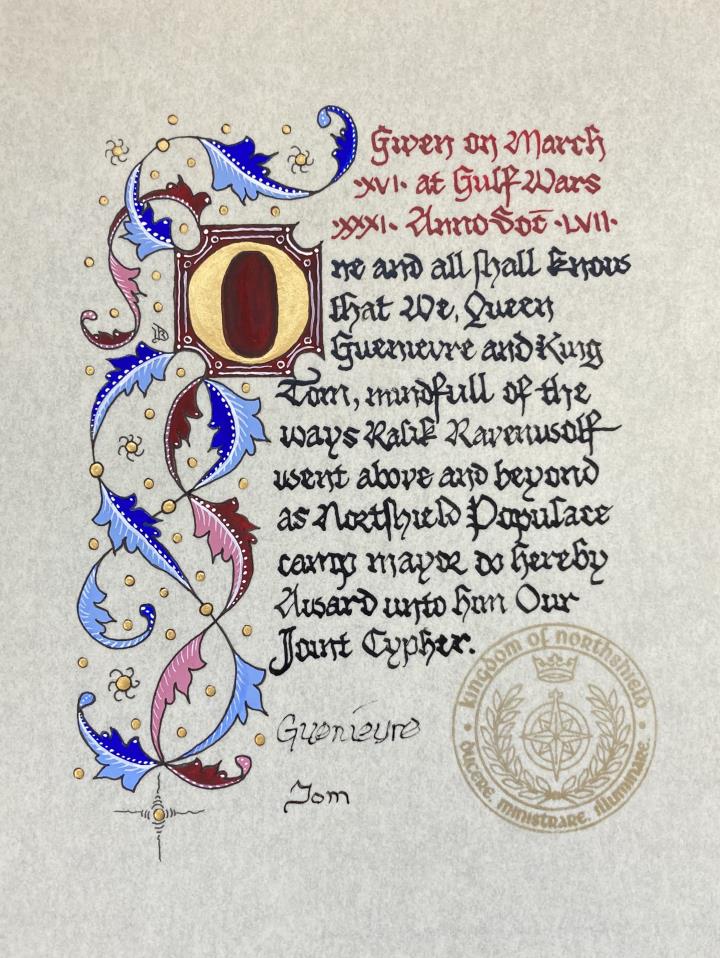 Given on March
·XVI· at Gulf Wars
·XXXI· Anno Soc̄ ·LVII·
One and all shall know
that We, Queen
Guenievre and King
Tom, mindfull of the
ways Ralik Ravenwolf
went above and beyond
as Northshield Populace
camp mayor do hereby
Award unto him Our
Joint Cypher.
Guenievre
Tom
kingdom of northshield
ducere. ministrare. illuminare.